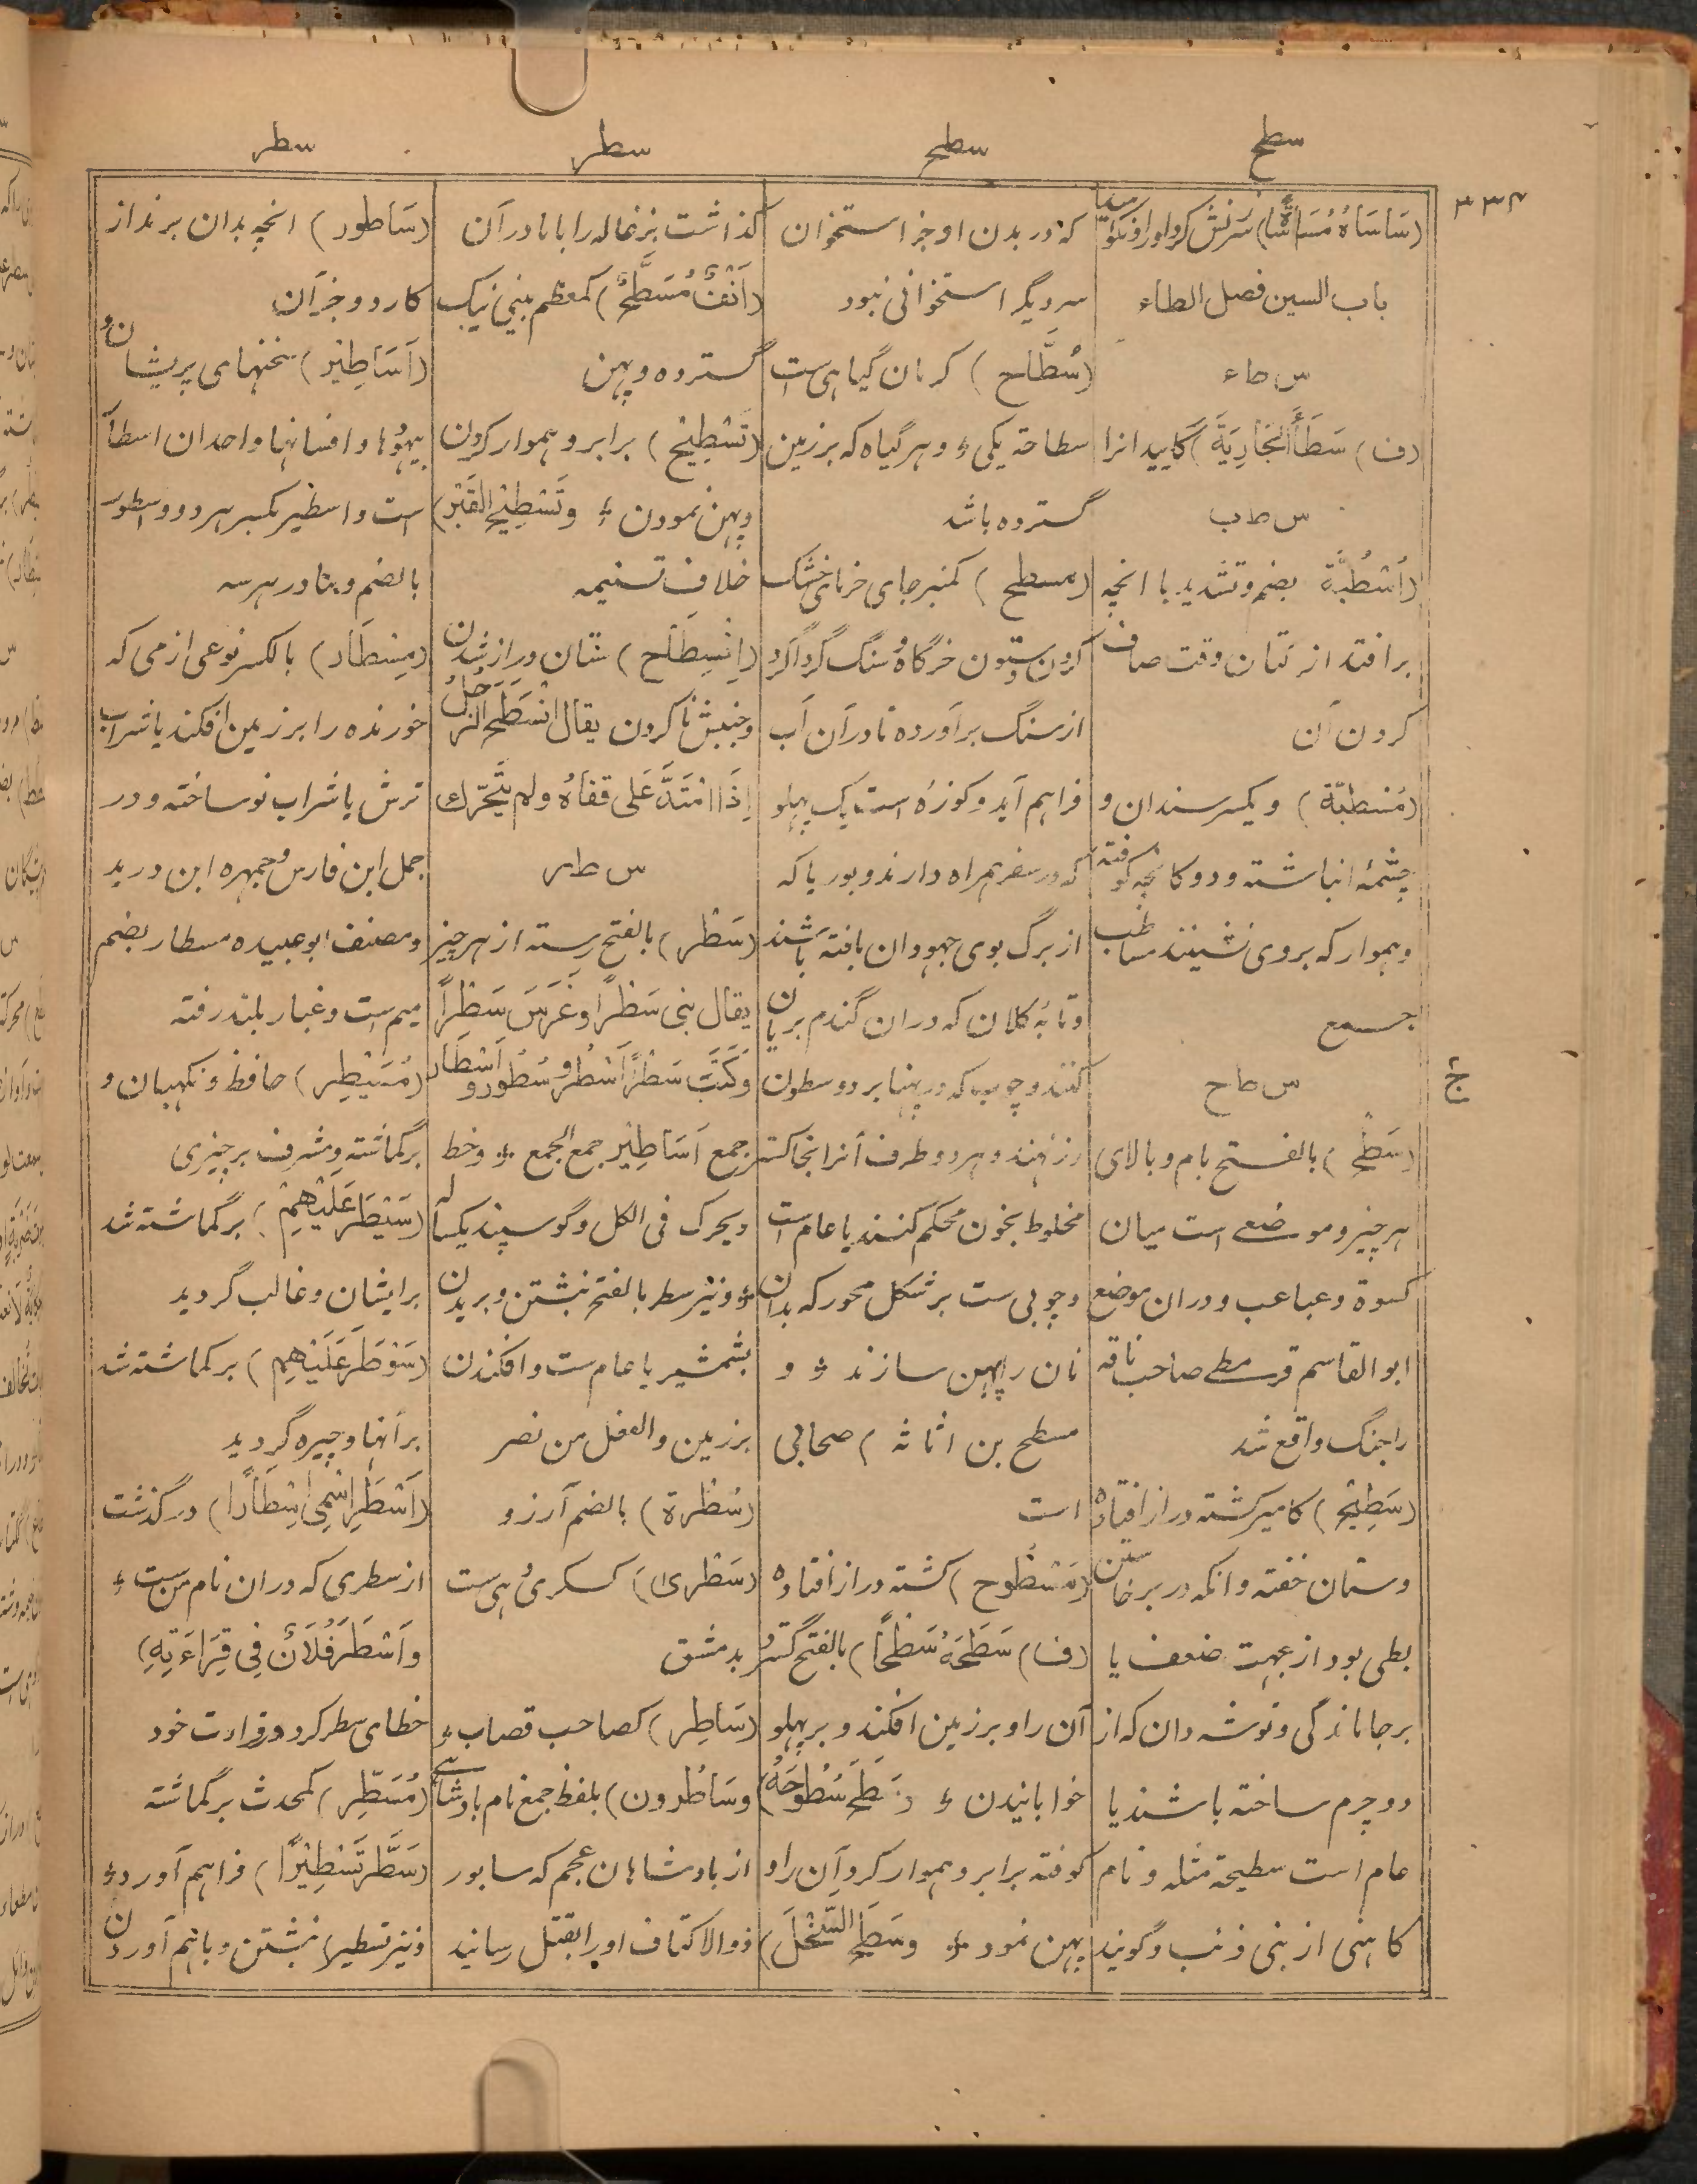 سطح
سطح
سطر
سطر
۳۳۴
(سَاسَاهُ مُسَاسَّاةً) سرزنش کرد او را و نکوهید
باب السین فصل الطاء
س ط ء
(ف) سَطَأَ الجَارِیَةَ) گایید انرا
س ط ب
(اُسْطُبَّة بضم و تشدید با انچه
بر افتد از کتان وقت صاف
کردن آن
(مُسْطَبّة) و یکسر سندان و
چشمهٔ انباشته و دوکانچه کوفته
و هموار که بروی نشینند مساطب
جمع
س ط ح
(سَطْح) بالفتح بام و بالای
هر چیز و موضعی است میان
کسوة و عباعب و دران موضع
ابو القاسم قرمطی صاحب ناقه
را جنگ واقع شد
(سَطِیْح) کامیر کشته دراز افتاده
و ستان خفته و انکه در برخاستن
بطی بود از جهت ضعف یا
بر جا ماندگی و توشه دان که از
دو چرم ساخته باشند یا
عام است سطیحة مثله و نام
کاهنی از بنی ذئب و گویند
که در بدن او جز استخوان
سر دیگر استخوانی نبود
(سُطَّاح) کرمان گیاهی ست
سطاحة یکی ؤ و هر گیاه که برزمین
گسترده باشد
(مسطح) کمنبر جای خرمای خشک
کردن و ستون خرگاه و سنگ گرداگرد
از سنگ برآورده تا دران آب
فراهم آید و کوزهٔ است یک پهلو
که در سفر همراه دارند و بوریا که
از برگ بوی جهودان بافته باشند
و تابهٔ کلان که دران گندم بریان
کنند و چوب که در پهنا بر دو ستون
رز نهند و هر دو طرف آنرا بخاکستر
مخلوط بخون محکم کنند یا عام است
و چوبی ست بر شکل محور که بدان
نان را پهن سازند ؤ و
مسطح بن اثاثه) صحابی
است
(مَسْطُوح) کشته دراز افتاده
(ف) سَطَحَهُ سَطْحًا) بالفتح گسترد
آن را و برزمین افکند و بر پهلو
خوابانیدن ؤ و سَطَحَ سُطُوحَهُ)
کوفته برابر و هموار کرد آن را و
پهن نمود ؤ و سَطَحَ السَّخْلَ)
گذاشت بزغاله را با مادر آن
(اَنْفٌ مُسَطَّحٌ) کمعظم بینی نیک
گسترده و پهن
(تَسْطِیْح) برابر و هموار کردن
و پهن نمودن ؤ وَتَسْطِیْحُ القَبْرِ)
خلاف تسنیمه
(اِنْسِطَاح) ستان دراز شدن
و جنبش نا کردن یقال انْسَطَحَ الرَّجُلُ
اِذَا امْتَدَّ عَلَی قفاهُ ولم یَتَحَرَّك
س ط ر
(سَطْر) بالفتح رسته از هر چیز
یقال بنی سَطْرًا و غَرَسَ سَطْرًا
وَکَتَبَ سَطْرًا اَسْطُر و سُطُور و اَسْطَار
جمع اَسَاطِیْر جمع الجمع ؤ و خط
و یحرك فی الکل و گوسپند یکساله
ؤ و نیز سطر بالفتح نبشتن و بریدن
بشمشیر یا عام ست و افکندن
برزمین و الفعل من نصر
(سُطْرة) بالضم آرزو
(سَطْری) کسکری دهی ست
بدمشق
(سَاطِر) کصاحب قصاب ؤ
و سَاطُرون) بلفظ جمع نام بادشاهی
از بادشاهان عجم که سابور
ذو الاکتاف او را بقتل رسانید
(سَاطُور) انچه بدان برند از
کارد و جز آن
(اَسَاطِیْر) سخنهای پریشان ؤ
بیهودها و افسانها واحدان اسطار
است و اسطیر بکسر هر دو و اسطور
بالضم و بتا در هر سه
(مِسْطَار) بالکسر نوعی از می که
خورنده را بر زمین افکند یا شراب
ترش یا شراب نو ساخته و در
جمل ابن فارس و جمهره ابن درید
و مصنف ابو عبیده مسطار بضم
میم است و غبار بلند رفته
(مُسَیْطِر) حافظ و نگهبان و
برگماشته و مشرف بر چیزی
(سَیْطَرَ عَلَیْهِمْ) برگماشته شد
بر ایشان و غالب گردید
(سَوْطَرَ عَلَیْهِم) برگماشته شد
بر آنها و چیره گردید
(اَسْطَرَ اسْمِی اِسْطَارًا) در گذشت
از سطری که دران نام من ست ؤ
وَاَسْطَرَ فُلَانٌ فِی قِرَاءَتِهِ)
خطای سطر کرد در قراءت خود
(مُسَطِّر) کمحدث برگماشته
(سَطَّرَ تَسْطِیْرًا) فراهم آورد ؤ
و نیز تسطیر نبشتن و باهم آوردن